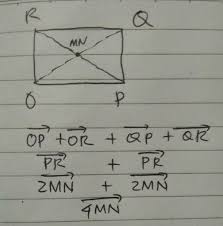 R Q
MN
O P
OP + OR + QP + QR
PR + PR
2MN + 2MN
4MN